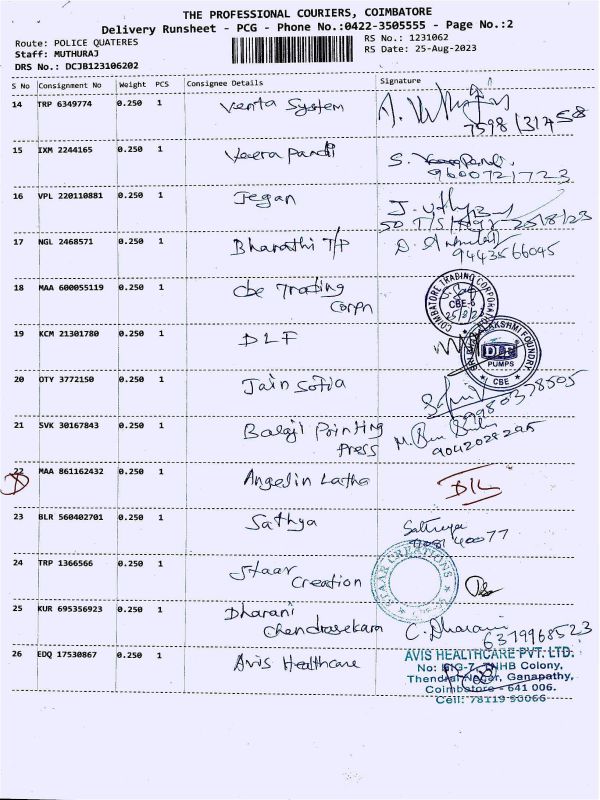 THE PROFESSIONAL COURIERS, COIMBATORE
Delivery Runsheet - PCG - Phone No.:0422-3505555 - Page No.:2
Route: POLICE QUATERES
RS No.: 1231062
Staff: MUTHURAJ
RS Date: 25-Aug-2023
DRS No.: DCJB123106202
S No Consignment No Weight PCS Consignee Details Signature
14 TRP 6349774 0.250 1 Venta System
15 IXM 2244165 0.250 1 Veera Pandi S.
9600721723
16 VPL 220110881 0.250 1 Jegan
17 NGL 2468571 0.250 1 Bharathi T/P
9443566045
18 MAA 600055119 0.250 1 Cbe Trading
Corpn
COIMBATORE TRADING CORPORATION
CBE-6
19 KCM 21301780 0.250 1 DLF
LAKSHMI FOUNDRY
PUMPS
CBE
20 OTY 3772150 0.250 1 Jain Sofia
21 SVK 30167843 0.250 1 Balaji Printing
Press
9042028295
22 MAA 861162432 0.250 1 Angelin Lathe D/L
23 BLR 560402701 0.250 1 Sathya Sathya
24 TRP 1366566 0.250 1 Staar
Creation
STAAR CREATIONS
25 KUR 695356923 0.250 1 Dharani
Chendrasekam C. Dharani
6379968523
26 EDQ 17530867 0.250 1 Avis Healthcare
AVIS HEALTHCARE PVT. LTD.
No: TNHB Colony,
Nagar, Ganapathy,
Coimbatore - 641 006.
Cell: